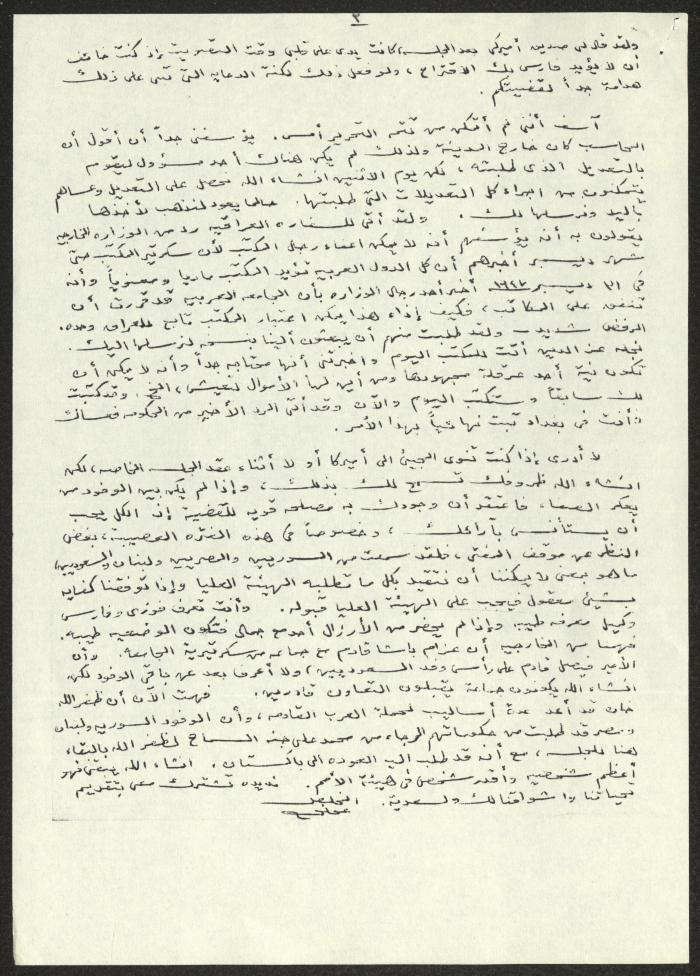 ٢
ولقد قال لي صديق أميركي بعد الجلسة، كانت يدي على قلبي وقت التصويت إذ كنت خائف
أن لا يؤيد فارس بك الاقتراح، ولو فعل ذلك لكنة الدعاية التي تبنى على ذلك
هدامة جداً لقضيتكم.
آسف أنني لم أتمكن من تتمة التحرير أمس. يؤسفني جداً أن أقول أن
المحاسب كان خارج المدينة ولذلك لم يكن هناك أحد مسؤول ليقوم
بالتعديل الذي طلبته، لكن يوم الاثنين انشاء الله نحصل على التعديل وعساهم
يتمكنون من اجراء كل التعديلات التي طلبتها. حالما يعود لنذهب لأخذها
باليد ونرسلها لك. ولقد أتى للسفارة العراقية رد من الوزارة الخارجية
يقولون به أنه يؤسفهم أنه لا يمكن اعفاء رجال المكتب لأن سكرتير المكتب حتى
شهر ديسمبر أخبرهم أن كل الدول العربية تؤيد المكتب ماديا ومعنوياً وأنه
في ٣١ ديسمبر ١٩٤٧ أخبر أحد رجال الوزارة بأن الجامعة العربية قد قررت أن
تنفق على المكاتب، فكيف إذاء هذا يمكن اعتبار المكتب تابع للعراق وحده.
الرفض شديد، ولقد طلبت منهم أن يبعثون ألينا بنسخه لنرسلها اليك.
نجلا عز الدين أتت للمكتب اليوم وأخبرتني أنها محتاجه جداً وأنه لا يمكن أن
تكون نية أحد عرقلة مجهودها ومن أين لها الأموال لتعيش، الخ. وقد كتبت
لك سابقاً وستكتب اليوم والآن وقد أتى الرد الأخير من الحكومه فعساك
وأنت في بغداد تبت نهائياً بهذا الأمر.
لا أدري إذا كنت تنوي المجيئ الى أميركا أو لا أثناء عقد الجلسه الخاصه، لكن
انشاء الله ظروفك تسمح لك بذلك، وإذا لم يكن بين الوفود من
يعكر الصفاء فاعتقد أن وجودك به مصلحه قويه للقضية إذ الكل يحب
أن يستأنس بآرائك، وخصوصاً في هذه الفتره العصيبة، بغض
النظر عن موقف المفتي، فلقد سمعت من السوريين والمصريين ولبنان والسعوديين،
ما هو بمعنى لا يمكننا أن نتقيد بكل ما تطلبه الهيئة العليا وإذا توفقنا كفايه
بشيئ معقول فيجب على الهيئة العليا قبوله. وأنت تعرف فوزي وفارس
وكميل معرفه طيبه وإذا لم يحضر من الأرذال أحد مع جمال فتكون الوضعيه طيبه.
فهمنا من الخارجيه أن عزام باشا قادم مع جماعه من سكرتيرية الجامعه. وأن
الأمير فيصل قادم على رأس وفد السعوديين، ولا أعرف بعد عن باقي الوفود لكن
انشاء الله يكونون جماعة يقبلون التعاون قادرين. فهمت الآن أن ظفر الله
خان قد أعد عدة أساليب لحملة العرب القادمه، وأن الوفود السوريه ولبنان
ومصر قد طلبت من حكوماتهم الرجاء من محمد علي جنه السماح لظفر الله بالبقاء
هنا للجلسه، مع أنه قد طلب اليه العوده الى باكستان. انشاء الله يبقى فهو
أعظم شخصيه وأقدر شخص في هيئة الأمم. نديده تشترك معي بتقديم
تحياتنا واشواقنا لك ولسعدية.
المخلص